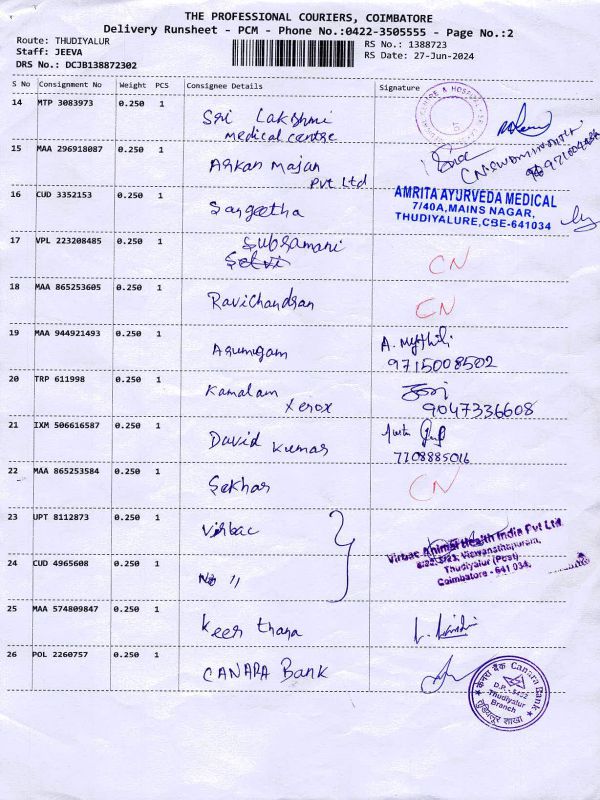 THE PROFESSIONAL COURIERS, COIMBATORE
Delivery Runsheet - PCM - Phone No.:0422-3505555 - Page No.:2
Route: THUDIYALUR
Staff: JEEVA
DRS No.: DCJB138872302
RS No.: 1388723
RS Date: 27-Jun-2024
S No Consignment No Weight PCS Consignee Details Signature
14 MTP 3083973 0.250 1 Sri Lakshmi
Medical centre
15 MAA 296918087 0.250 1 Arkan Majan
Pvt Ltd
16 CUD 3352153 0.250 1 Sangeetha
AMRITA AYURVEDA MEDICAL
7/40A,MAINS NAGAR,
THUDIYALURE,CBE-641034
17 VPL 223208485 0.250 1 Subramani
CN
18 MAA 865253605 0.250 1 Ravichandran CN
19 MAA 944921493 0.250 1 Arumugam A. Mythili
9715008502
20 TRP 611998 0.250 1 Kamalam
Xerox 9047336608
21 IXM 506616587 0.250 1 David Kumar
7708885016
22 MAA 865253584 0.250 1 Sekhar CN
23 UPT 8112873 0.250 1 Virbac
Virbac Animal Health India Pvt Ltd.
Thudiyalur (Post)
Coimbatore - 641 034.
24 CUD 4965608 0.250 1 11
25 MAA 574809847 0.250 1 Keerthana
26 POL 2260757 0.250 1 CANARA Bank
केनरा बैंक Canara Bank
D.P.-8422
Thudiyalur
Branch
तुडियलूर शाखा